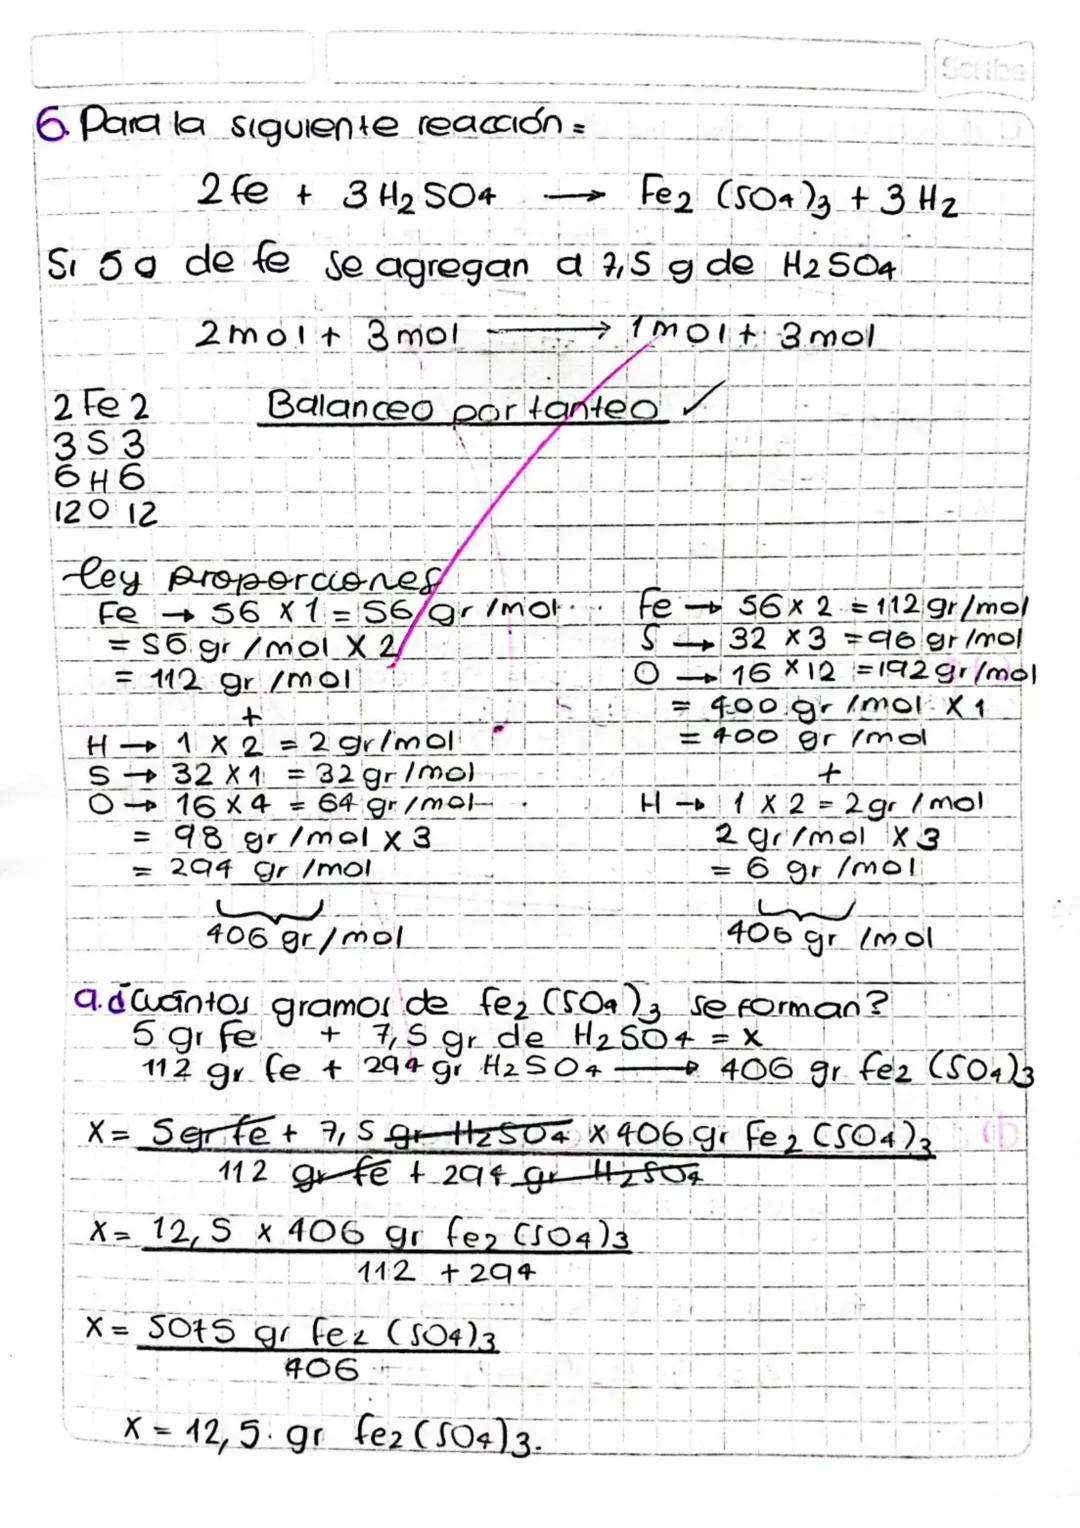 Scribe
6. Para la siguiente reacción =
2 fe + 3 H2 SO4 → Fe2 (SO4)3 + 3 H2
Si 5 g de fe se agregan a 7,5 g de H2SO4
2 mol + 3 mol → 1 mol + 3 mol
2 Fe 2
Balanceo por tanteo ✓
3 S 3
6 H 6
12 O 12
ley proporciones
Fe → 56 x 1 = 56 gr /mol
= 56 gr /mol x 2
= 112 gr /mol
+
H → 1 x 2 = 2 gr/mol
S → 32 x 1 = 32 gr /mol
O → 16 x 4 = 64 gr /mol
= 98 gr /mol x 3
= 294 gr /mol
406 gr/mol
Fe → 56 x 2 = 112 gr/mol
S → 32 x 3 = 96 gr /mol
O → 16 x 12 = 192 gr/mol
= 400 gr /mol x 1
= 400 gr /mol
+
H → 1 x 2 = 2 gr /mol
2 gr/mol x 3
= 6 gr /mol
406 gr /mol
a. ¿Cuántos gramos de fe2 (SO4)3 se forman?
5 gr fe + 7,5 gr de H2SO4 = x
112 gr fe + 294 gr H2SO4 → 406 gr fe2 (SO4)3
x = 5 gr fe + 7,5 gr H2SO4 x 406 gr fe2 (SO4)3
112 gr fe + 294 gr H2SO4
x = 12,5 x 406 gr fe2 (SO4)3
112 + 294
x = 5075 gr fe2 (SO4)3
406
x = 12,5 gr fe2 (SO4)3.